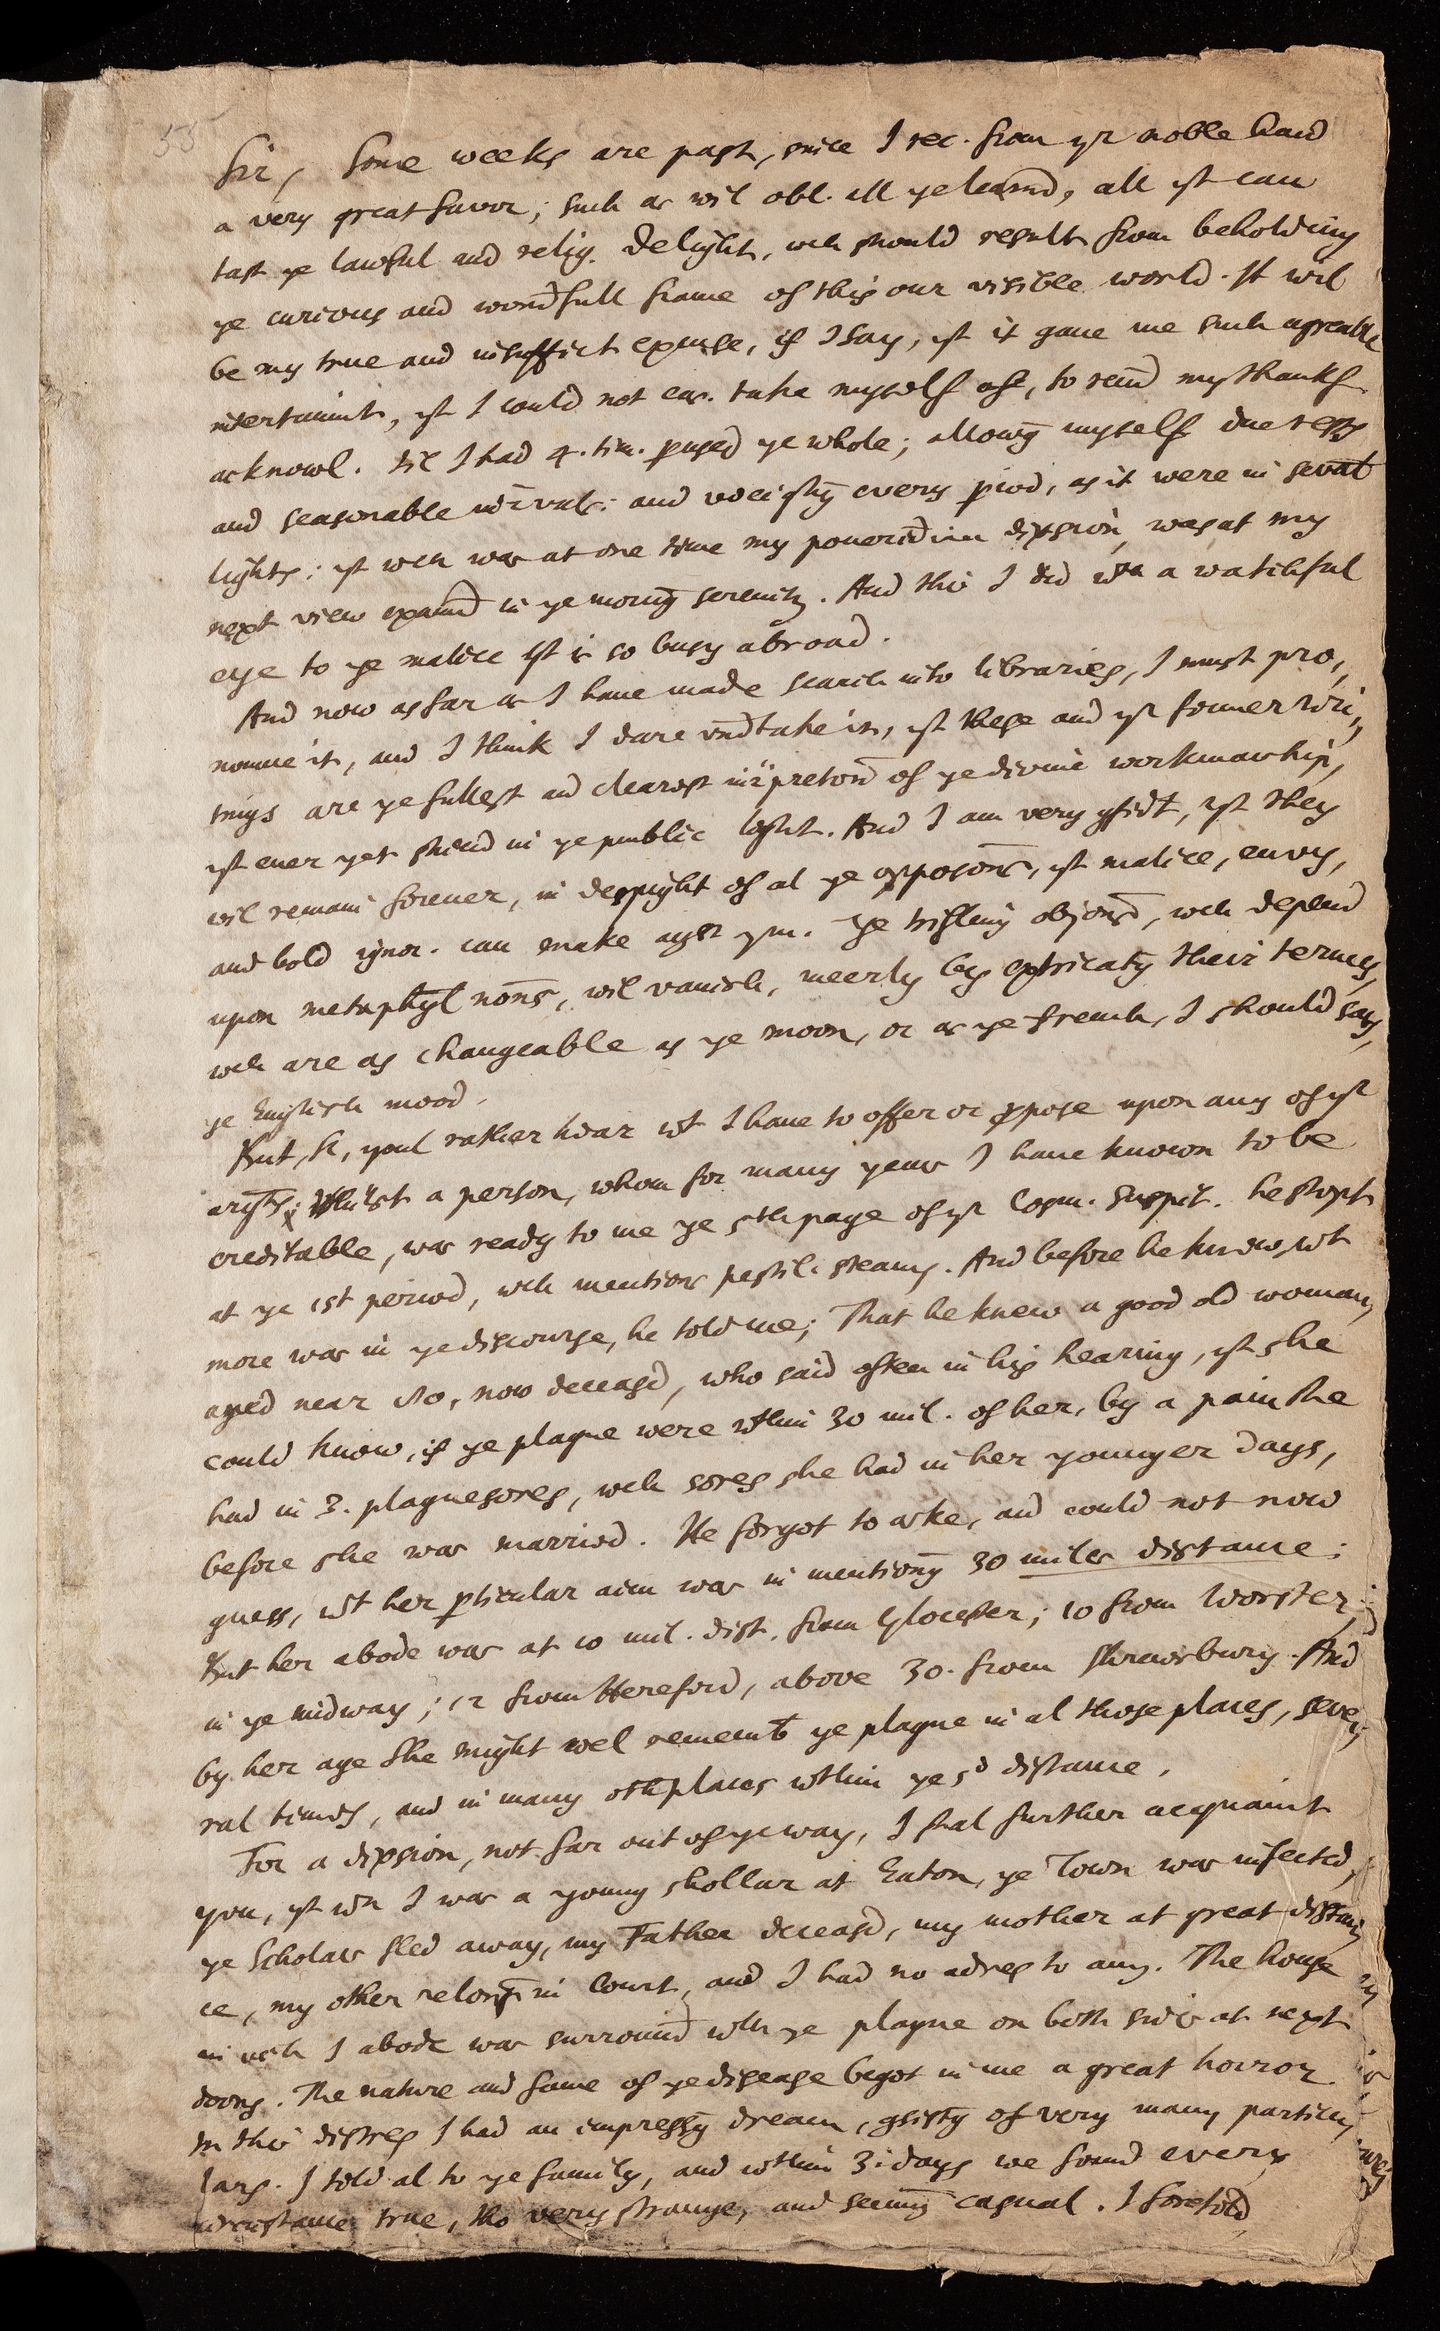 55
Sir, Some weeks are past, since I rec. from yr noble hand
a very great favor; such as wil obl. all ye learnd, all yt can
tast ye lawful and relig. delight, wch should result from beholding
ye curious and wondfull frame of this our visible world. It wil
be my true and insuffict excuse, if I say, yt it gave me such agreable
intertainmt, yt I could not eas. take myself off, to rend my thanks
acknowl. til I had 4. tim. pused ye whole; allowg myself due
and seasonable intvals: and every piod, as it were in seval
lights; yt wch was at one time my was at my
next view in ye morng serenity. And this I did wth a watchful
eye to ye malice yt is so busy abroad.
And now as far as I have made search into libraries, I must pro,
nounce it, and I think I dare undtake it, yt these and yr former wri,
tings are ye fullest and clearest of ye divine workmanship,
yt ever yet shind in ye public light. And I am very yt they
wil remain forever, in despight of al ye opposons, yt malice, envy,
and bold ignor. can make agst ym. Ye trifling objons, wch depend
upon metaphyl nons, wil vanish, meerly by extricatg their termes,
wch are as changeable as ye moon, or as ye french, I should say,
ye English mood.
But, Sr, youl rather hear wt I have to offer or ppose upon any of yr
argts; Whilst a person, whom for many years I have known to be
creditable, was ready to me ye 5th page of yr Cosm. Suspit. he stopt
at ye 1st period, wch mentions pestil. steams. And before he knew, wt
more was in ye discourse, he told me; That he knew a good old woman,
aged near 80, now deceasd, who said often in his hearing, yt she
could know, if ye plague were wthin 30 mil. of her, by a pain she
had in 3. plaguesores, wch sores she had in her younger days,
before she was married. He forgot to aske, and could not now
guess, wt her pticular aim was in mentiong 30 miles distance:
But her abode was at 10 mil. dist. from Glocester; 10 from Worster,
in ye midway; 12 from Hereford, above 30. from Shrewsbury. And
by her age she might wel rememb ye plague in al those places, seve,
ral times, and in many oth places wthin ye sd distance.
For a dixsion, not far out of ye way, I shal further acquaint
you, yt wn I was a young shollar at Eaton, ye Town was infected,
ye Scholars fled away, my Father deceasd, my mother at great distan,
ce, my other relons in Court, and I had no adres to any. The house
in wch I abode was surround wth ye plague on both sides at next
doors. The nature and fame of ye disease begot in me a great horror.
In this distres I had an impressg dream, of very many particu,
lars. I told al to ye family, and wthin 3. days we found every
circumstance true, tho very strange, and seemg casual. I foretold